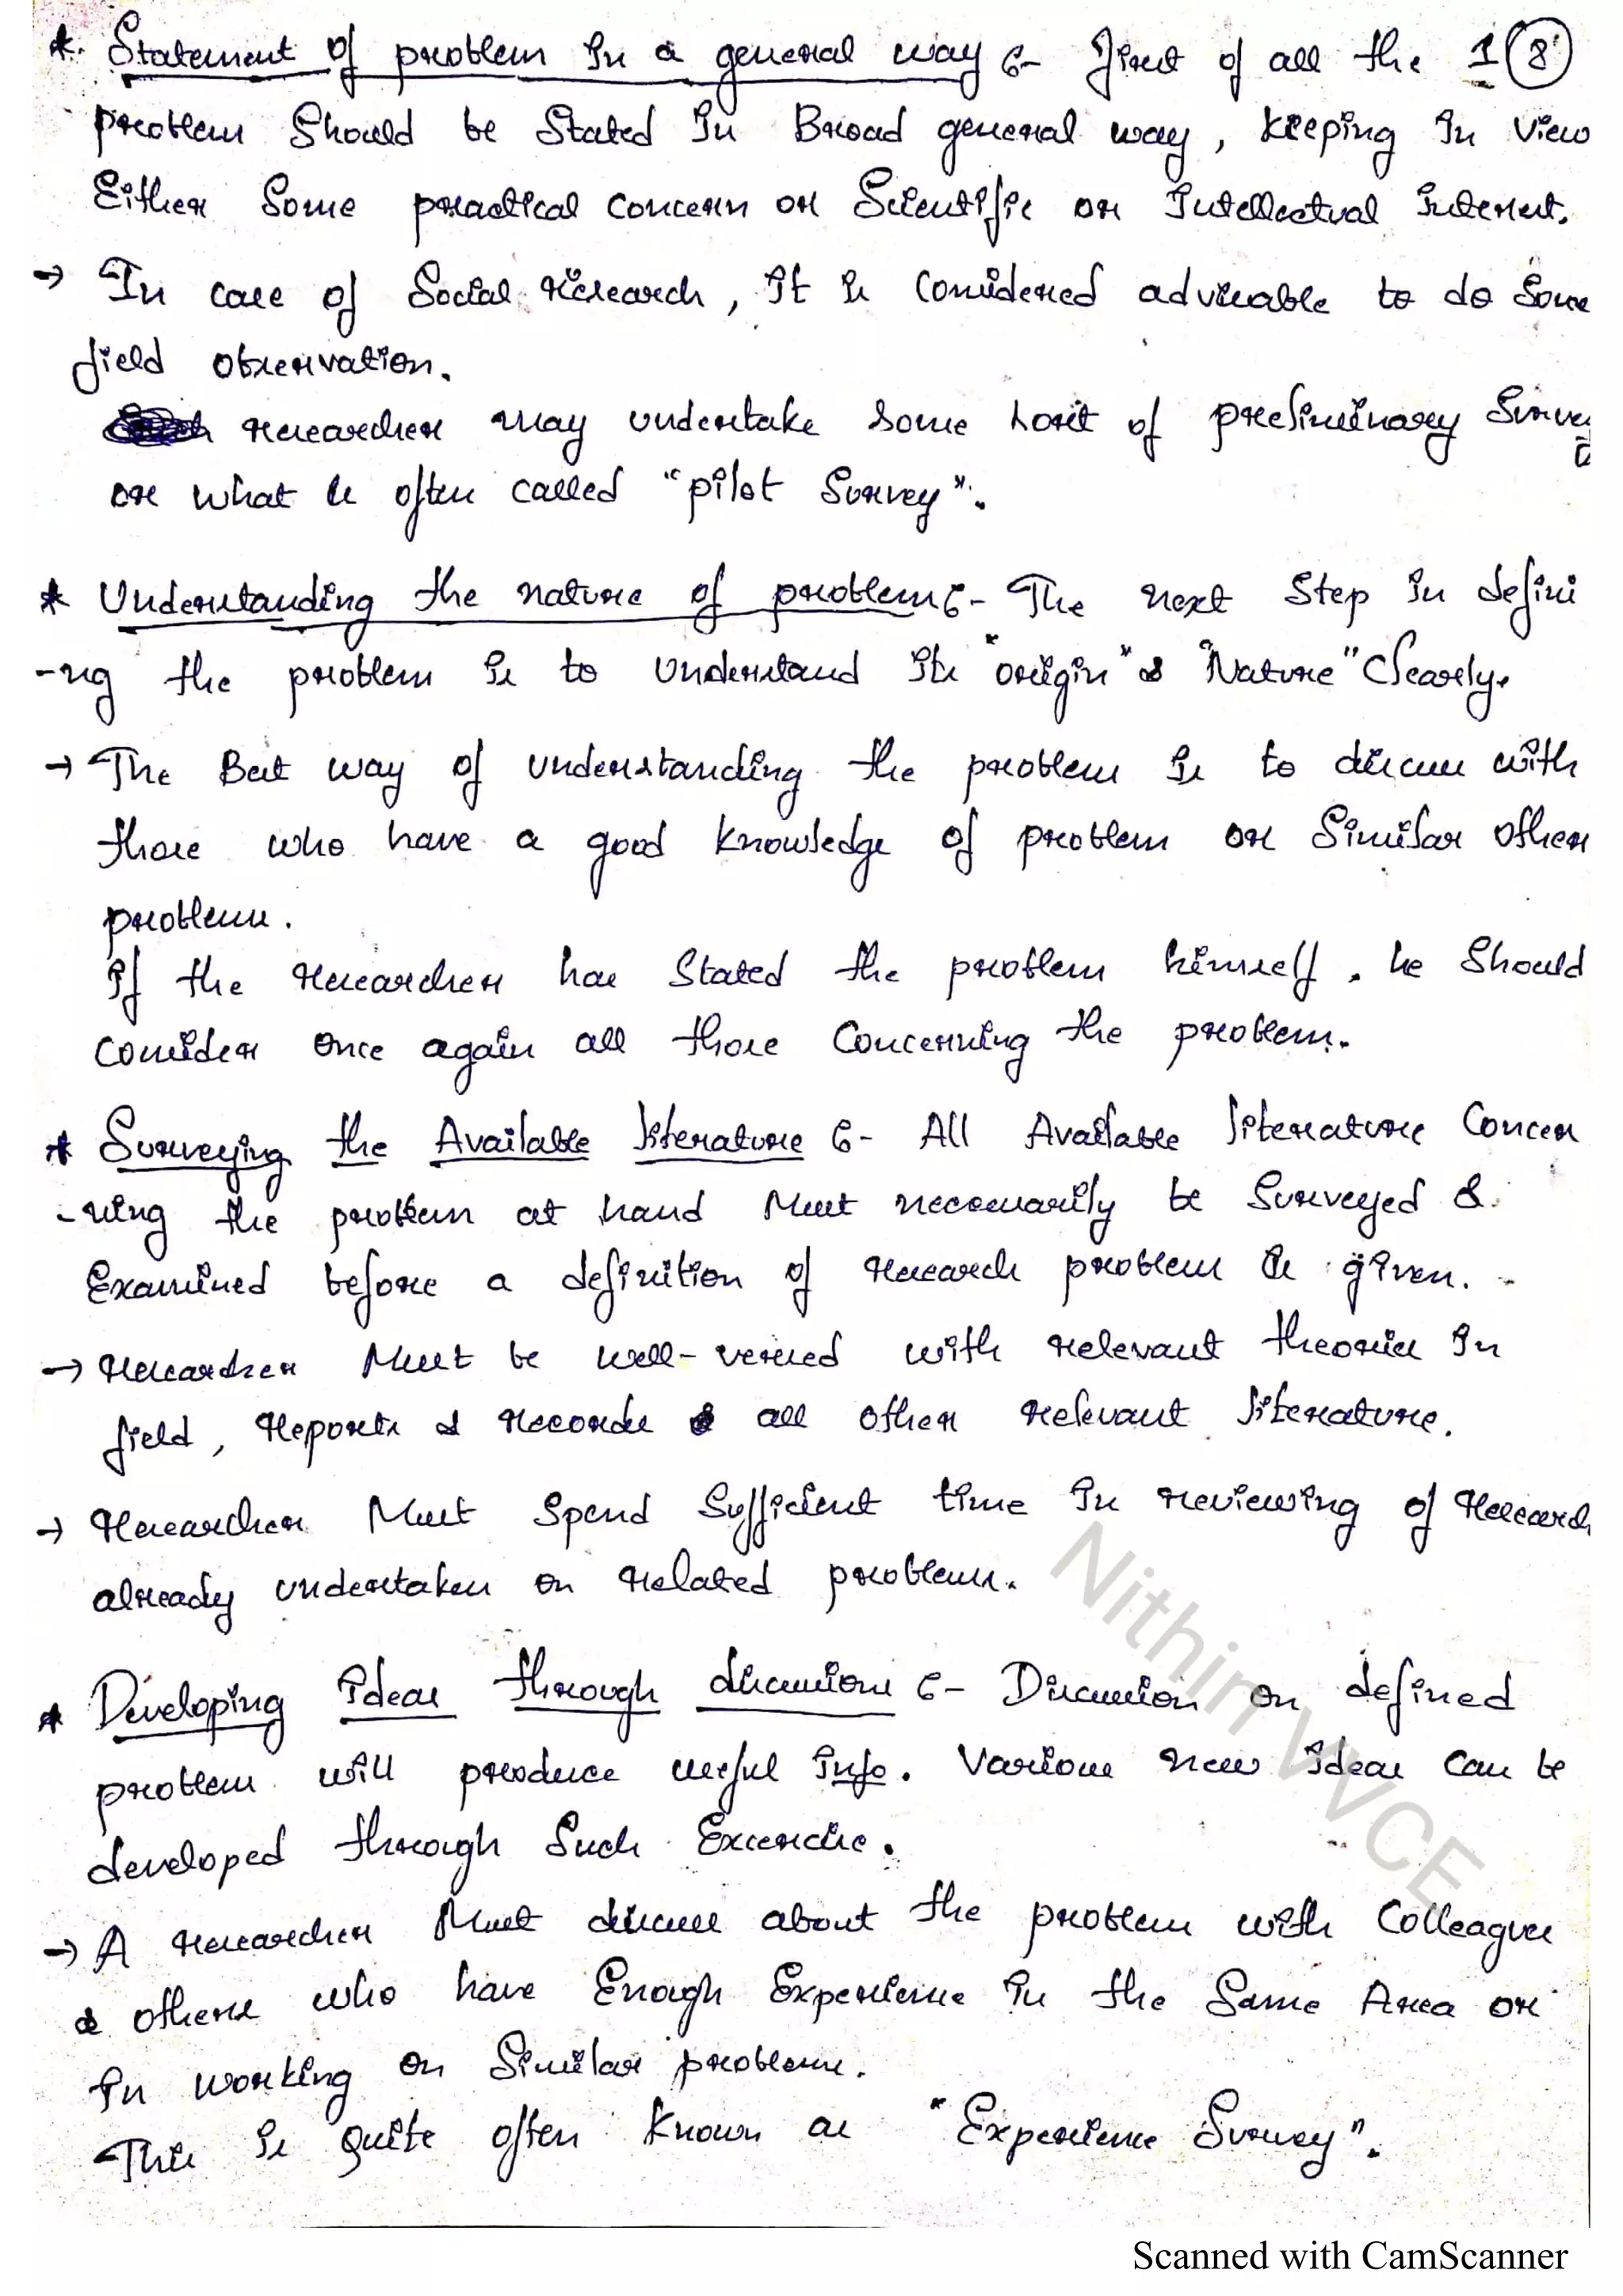 * Statement of problem In a general way :- First of all the 1 (8)
problem Should be Stated In Broad general way, keeping In view
Either Some practical concern or Scientific or Intellectual Interest.
→ In case of Social research, It is Considered advisable to do Some
field observation.
researcher may undertake some sort of preliminary Survey
or what is often called "pilot Survey".
* Understanding the nature of problem :- The next Step In defini
-ng the problem Is to Understand Its "origin" & "Nature" Clearly.
→ The Best way of understanding the problem Is to discuss with
those who have a good knowledge of problem or Similar other
problems.
If the researcher has Stated the problem himself, he Should
consider once again all those Concerning the problem.
* Surveying the Available literature :- All Available literature Concer
-ning the problem at hand Must necessarily be Surveyed &
Examined before a definition of research problem is given.
→ researcher Must be well-versed with relevant theories In
field, reports & records & all other relevant literature.
→ researcher Must Spend Sufficient time In reviewing of research
already undertaken on related problems.
* Developing Ideas through discussions :- Discussion on defined
problem will produce useful Info. Various new Ideas Can be
developed through Such Excercise.
→ A researcher Must discuss about the problem with Colleagues
& others who have Enough Experience In the Same Area or
In working on Similar problems.
This Is quite often known as "Experience Survey".
Nithin VVCE
Scanned with CamScanner